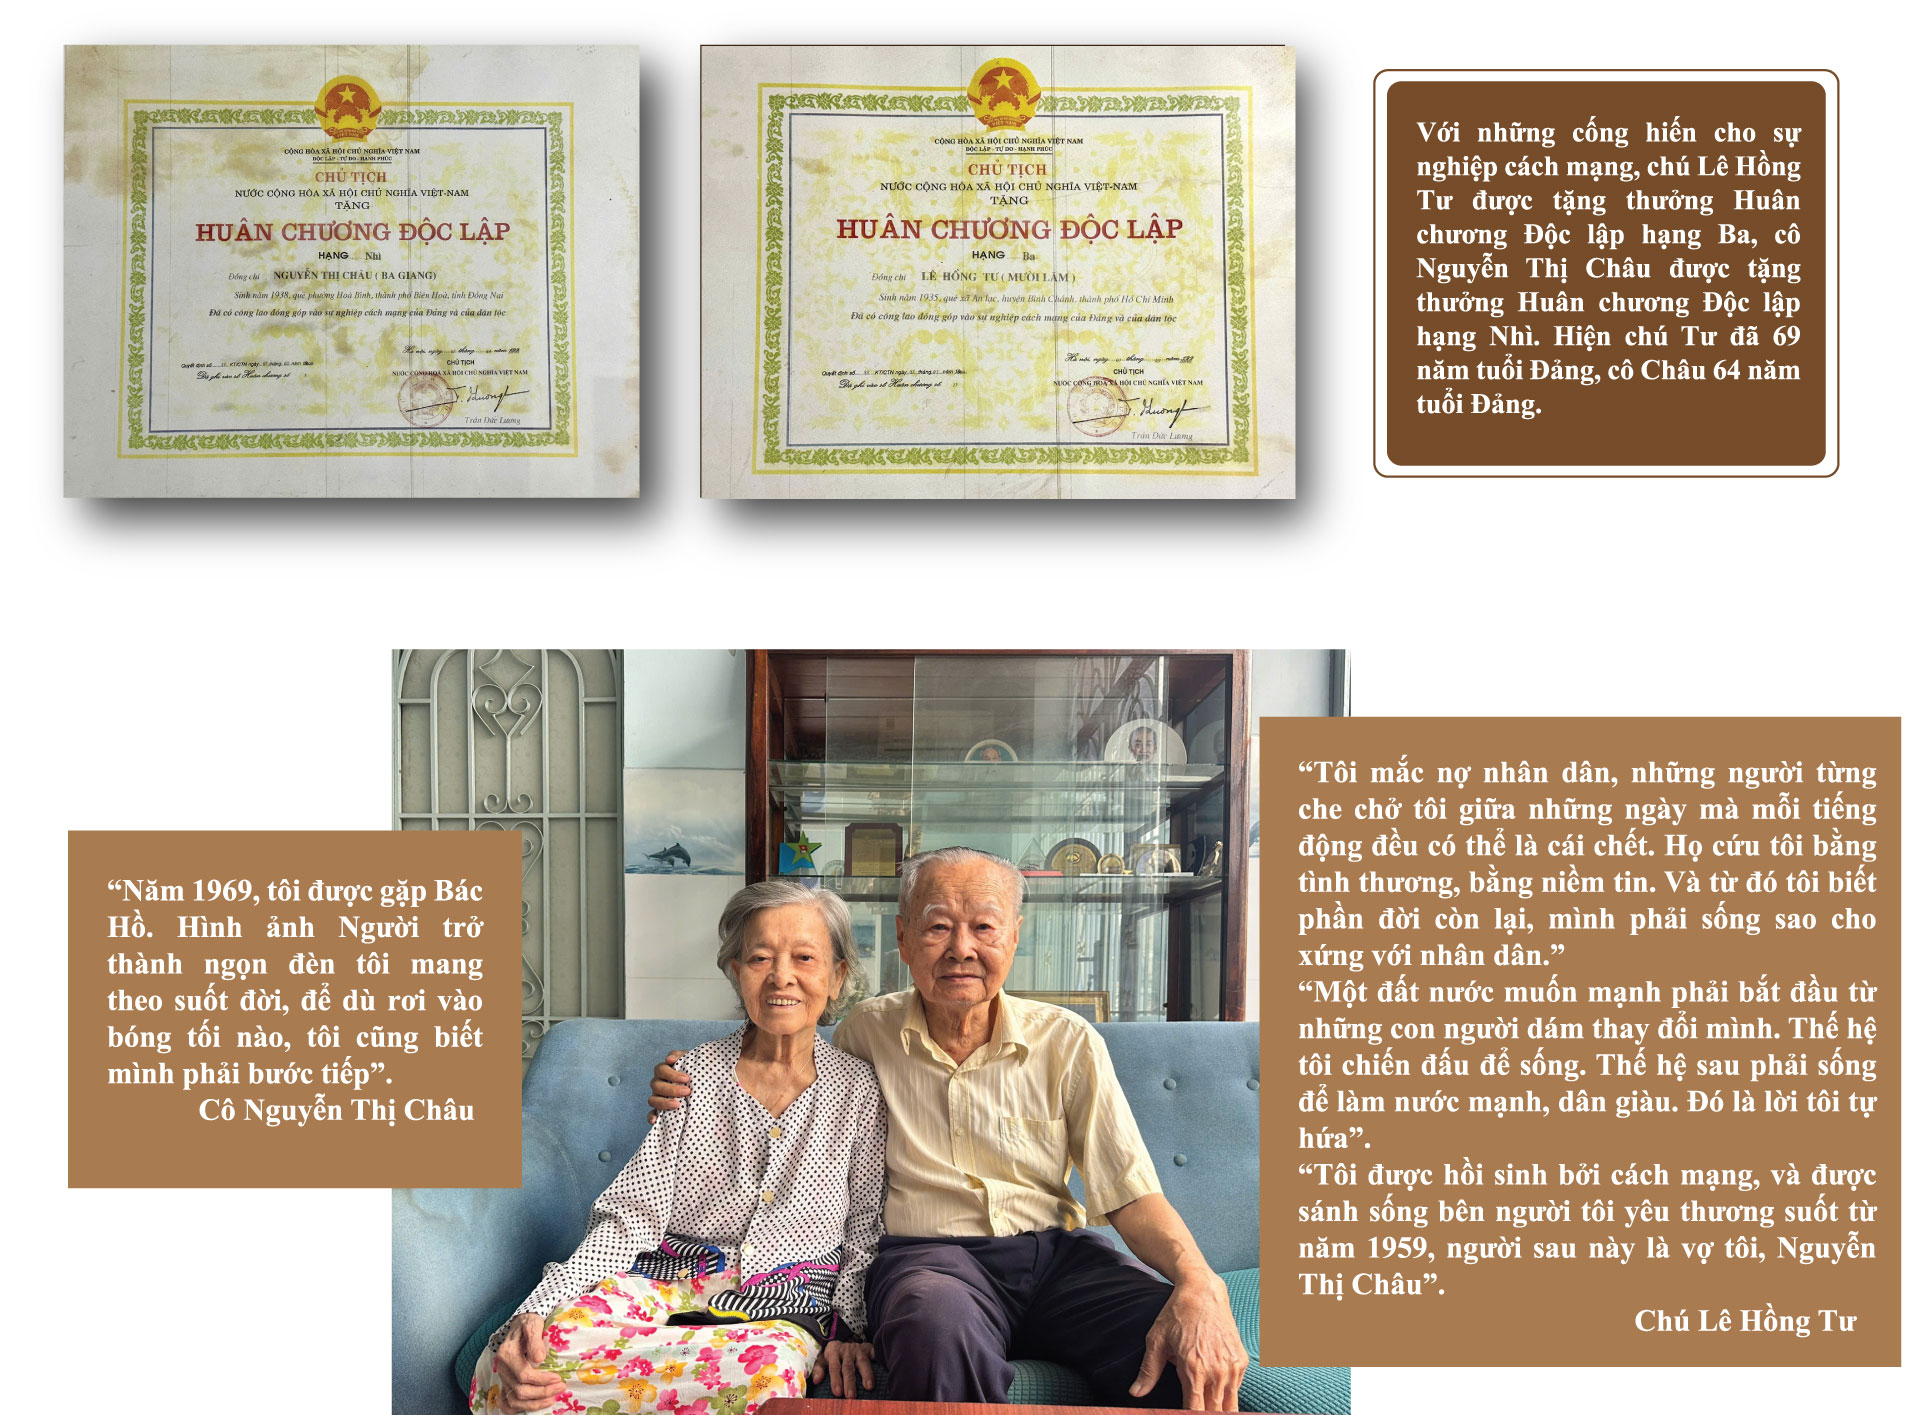 CỘNG HÒA XÃ HỘI CHỦ NGHĨA VIỆT NAM
ĐỘC LẬP - TỰ DO - HẠNH PHÚC
CHỦ TỊCH
NƯỚC CỘNG HÒA XÃ HỘI CHỦ NGHĨA VIỆT-NAM
TẶNG
HUÂN CHƯƠNG ĐỘC LẬP
HẠNG Nhì
Đồng chí NGUYỄN THỊ CHÂU ( BA GIANG)
Sinh năm 1938, quê phường Hoà Bình, thành phố Biên Hoà, tỉnh Đồng Nai
Đã có công lao đóng góp vào sự nghiệp cách mạng của Đảng và của dân tộc
Hà nội, ngày tháng năm
CHỦ TỊCH
NƯỚC CỘNG HÒA XÃ HỘI CHỦ NGHĨA VIỆT NAM
Quyết định số KT/CTN ngày tháng năm
Đã ghi vào sổ Huân chương số
Trần Đức Lương
CỘNG HÒA XÃ HỘI CHỦ NGHĨA VIỆT NAM
ĐỘC LẬP - TỰ DO - HẠNH PHÚC
CHỦ TỊCH
NƯỚC CỘNG HÒA XÃ HỘI CHỦ NGHĨA VIỆT-NAM
TẶNG
HUÂN CHƯƠNG ĐỘC LẬP
HẠNG Ba
Đồng chí LÊ HỒNG TƯ ( MƯỜI LÂM )
Sinh năm 1935, quê xã An lạc, huyện Bình Chánh, thành phố Hồ Chí Minh
Đã có công lao đóng góp vào sự nghiệp cách mạng của Đảng và của dân tộc
Hà nội, ngày tháng năm
CHỦ TỊCH
NƯỚC CỘNG HÒA XÃ HỘI CHỦ NGHĨA VIỆT NAM
Quyết định số KT/CTN ngày tháng năm
Đã ghi vào sổ Huân chương số
Trần Đức Lương
Với những cống hiến cho sự
nghiệp cách mạng, chú Lê Hồng
Tư được tặng thưởng Huân
chương Độc lập hạng Ba, cô
Nguyễn Thị Châu được tặng
thưởng Huân chương Độc lập
hạng Nhì. Hiện chú Tư đã 69
năm tuổi Đảng, cô Châu 64 năm
tuổi Đảng.
“Năm 1969, tôi được gặp Bác
Hồ. Hình ảnh Người trở
thành ngọn đèn tôi mang
theo suốt đời, để dù rơi vào
bóng tối nào, tôi cũng biết
mình phải bước tiếp”.
Cô Nguyễn Thị Châu
“Tôi mắc nợ nhân dân, những người từng
che chở tôi giữa những ngày mà mỗi tiếng
động đều có thể là cái chết. Họ cứu tôi bằng
tình thương, bằng niềm tin. Và từ đó tôi biết
phần đời còn lại, mình phải sống sao cho
xứng với nhân dân.”
“Một đất nước muốn mạnh phải bắt đầu từ
những con người dám thay đổi mình. Thế hệ
tôi chiến đấu để sống. Thế hệ sau phải sống
để làm nước mạnh, dân giàu. Đó là lời tôi tự
hứa”.
“Tôi được hồi sinh bởi cách mạng, và được
sánh sống bên người tôi yêu thương suốt từ
năm 1959, người sau này là vợ tôi, Nguyễn
Thị Châu”.
Chú Lê Hồng Tư